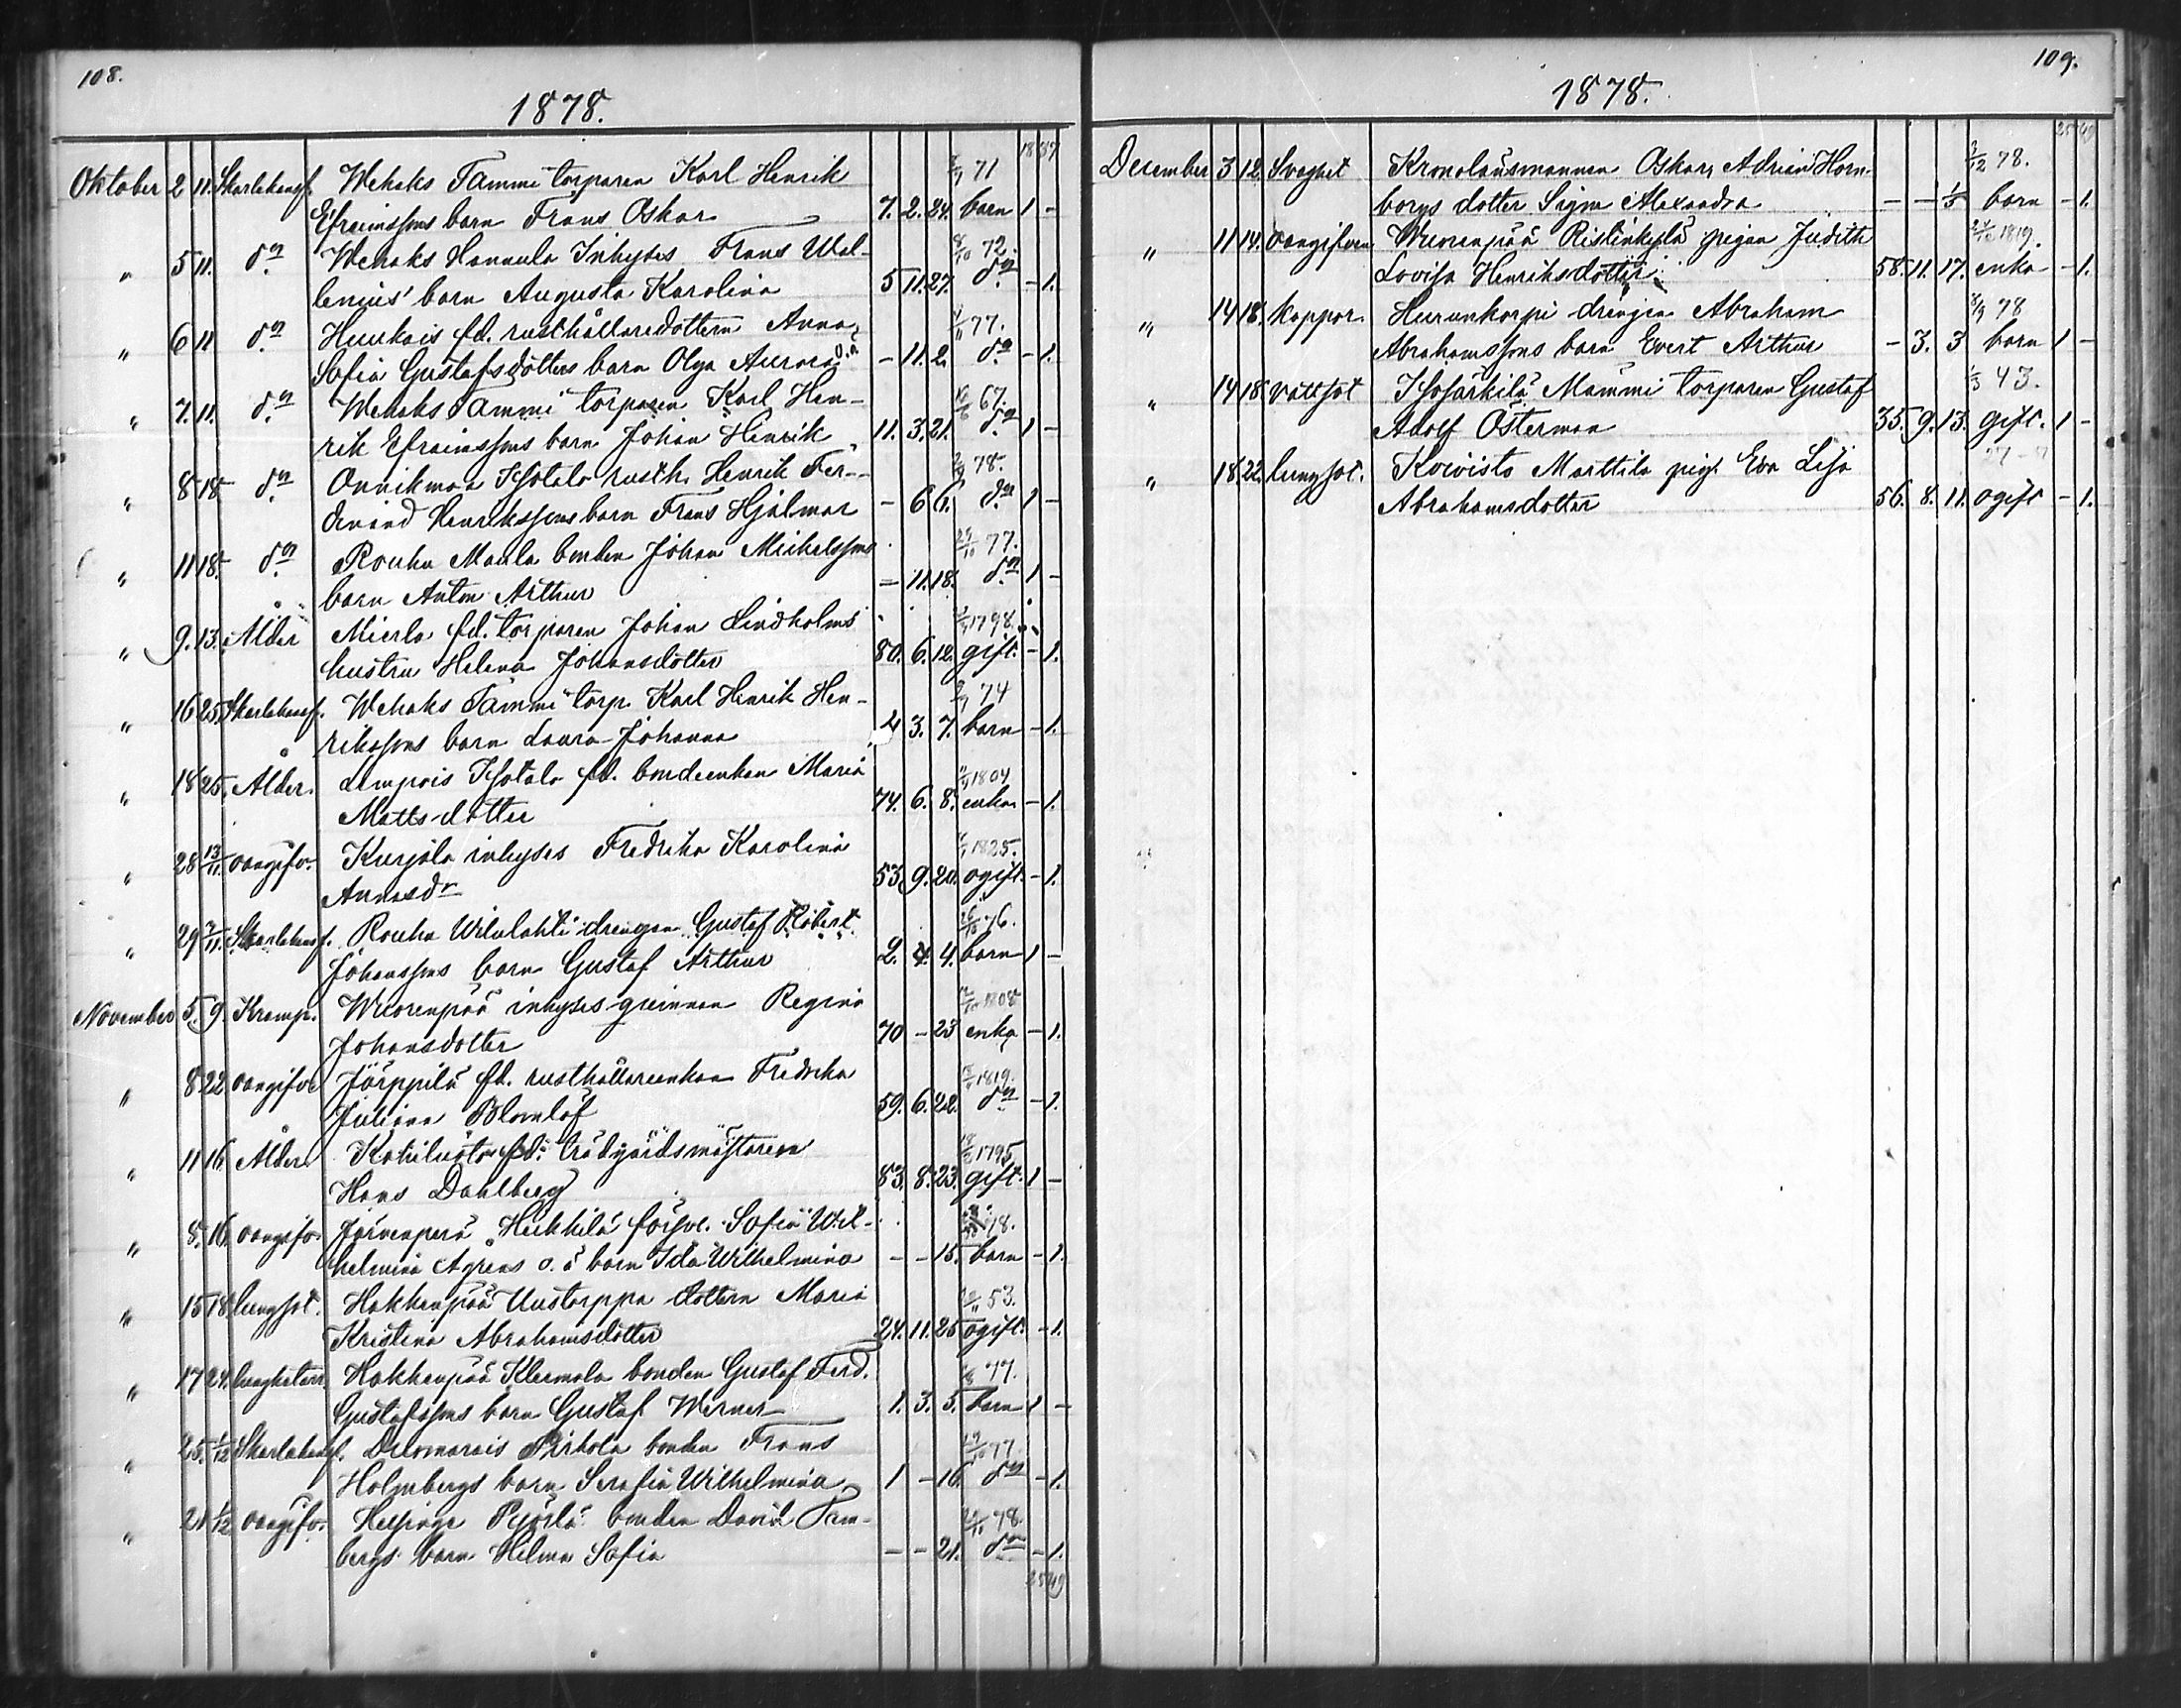 108.
1878.
18 37
Oktober 2 11. Skarlakansf. Wehaks Tammi torparen Karl Henrik 71
Efraimssons barn Frans Oskar 7. 2. 24. barn 1 -
" 5 11. do Wehaks Hannula Inhyses Frans Wal- 8/10 72.
lenius' barn Augusta Karolina 5 11. 27. do - 1.
" 6 11 do Huukais fd. rusthållaredottern Anna 77.
Sofia Gustafsdotters barn Olga Aurora o.ä - 11. 2. do - 1.
" 7. 11. do Wehaks Tammi torparen Karl Hen- 67.
rik Efraimssons barn Johan Henrik 11. 3. 21. do 1 -
" 8 18 do Onnikmaa Isotalo rusth. Henrik Fer- 78.
dinand Henrikssons barn Frans Hjalmar - 6 6. do 1 -
" 11 18. do Rouhu Maula bonden Johan Michelssons 77.
barn Anton Arthur - 11. 18. do 1 -
" 9. 13. Ålder Mierla fd. torparen Johan Lindholms 1798.
hustru Helena Johansdotter 80. 6. 12. gift. - 1.
" 16 25. Skarlakansf. Wehaks Tammi torp. Karl Henrik Hen- 74
rikssons barn Laura Johanna 4 3. 7. barn - 1.
" 18 25. Ålder. Lempois Isotalo fd. bondeenkan Maria 1804
Mattsdotter 74. 6. 8. enka - 1.
" 28 13/11. oangifv. Kurjala inhyses Fredrika Karolina 1825.
Annasdr 53. 9. 20. ogift. - 1.
" 29 /11. Skarlakansf. Rouhu Wilulahti drengen Gustaf Robert 26/10 76.
Johanssons barn Gustaf Arthur 2. 4. 4. barn 1 -
November 5. 9. Kramp. Wuorenpää inhyses qvinnan Regina 1808
Johansdotter 70 - 23 enka - 1.
" 8 22 oangifv. Järppilä fd. rusthållareenkan Fredrika 1819.
Juliana Blomlöf 59. 6. 22. do - 1.
" 11 16. Ålder Kahiluoto fd. trädgårdsmästaren 18/2 1795
Hans Dahlberg 83. 8. 23. gift. 1 -
" 8. 16. oangifv. Järvenperä Heikkilä försv. Sofia Wil- 78.
helmina Agrens o. ä barn Ida Wilhelmina - - 15. barn - 1.
" 15 18 lungsot. Hakkenpää Uustorppa dottern Maria 20/11 53.
Kristina Abrahamsdotter 24. 11. 25 ogift. - 1.
" 17 24. Hakkenpää Kleemola bonden Gustaf Ferd. 77.
Gustafssons barn Gustaf Werner 1. 3. 5. barn 1 -
" 25. 1/12 Skarlakansf. Dilomarais Pirhola bonden Frans 77
Holmbergs barn Serafia Wilhelmina 1 - 16. do - 1.
" 21 1/12 oangifv. Helsinge Pyörlä bonden David Tam- 78.
bergs barn Hilma Sofia - - 21. do - 1.
25 49
109.
1878.
25 49
December 3 12. Svaghet Kronolänsmannen Oskar Adrian Horn- 2/12 78.
borgs dotter Signe Alexandra - - 1/5 barn - 1.
" 11 14. oangifven Wuorenpää Ristinkylä pigan Judith 1819.
Lovisa Henriksdotter 58. 11. 17. enka - 1.
" 14 18. koppor. Hurunkorpi drengen Abraham 78
Abrahamssons barn Evert Arthur - 3. 3 barn 1 -
" 14 18. vattsot Isosärkilä Mammi torparen Gustaf 1/3 43.
Adolf Österman 35. 9. 13. gift. 1 -
" 18. 22. lungsot. Koivisto Marttila pig. Eva Lisa
Abrahamsdotter 56. 8. 11. ogift - 1.